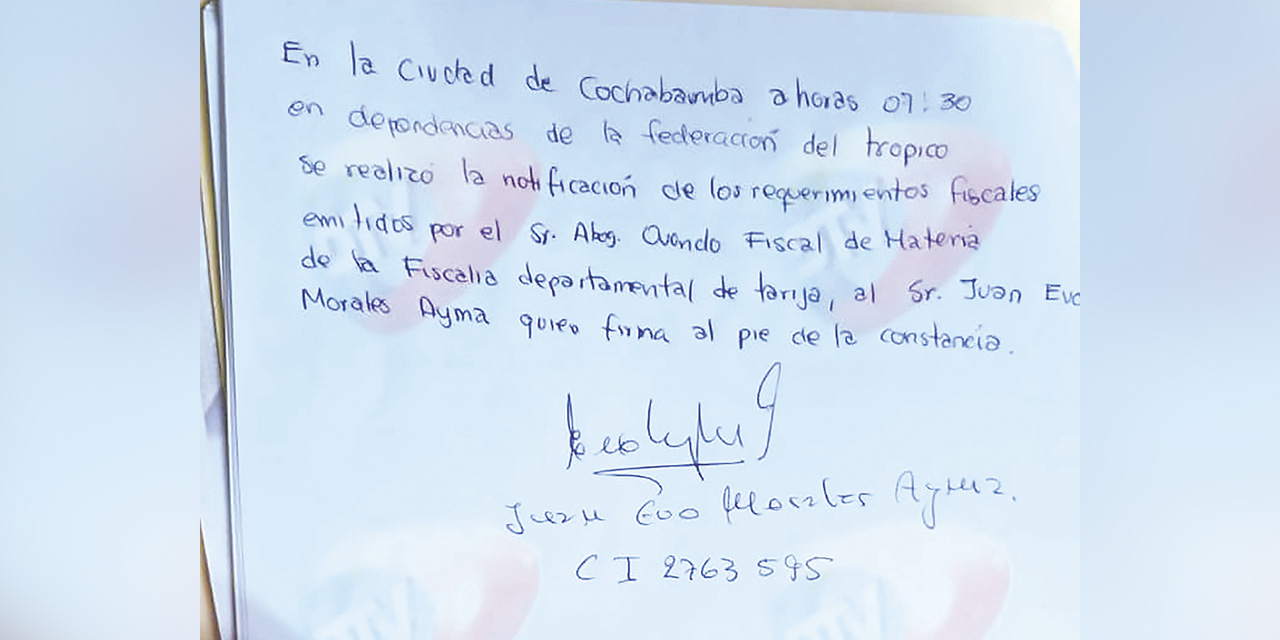 En la Ciudad de Cochabamba a horas 07:30
en dependencias de la federación del tropico
se realizó la notificación de los requerimientos fiscales
emitidos por el Sr. Abog. Ovando Fiscal de Materia
de la Fiscalia departamental de tarija, al Sr. Juan Evo
Morales Ayma quien firma al pie de la constancia.
Juan Evo Morales Ayma.
CI 2763 595